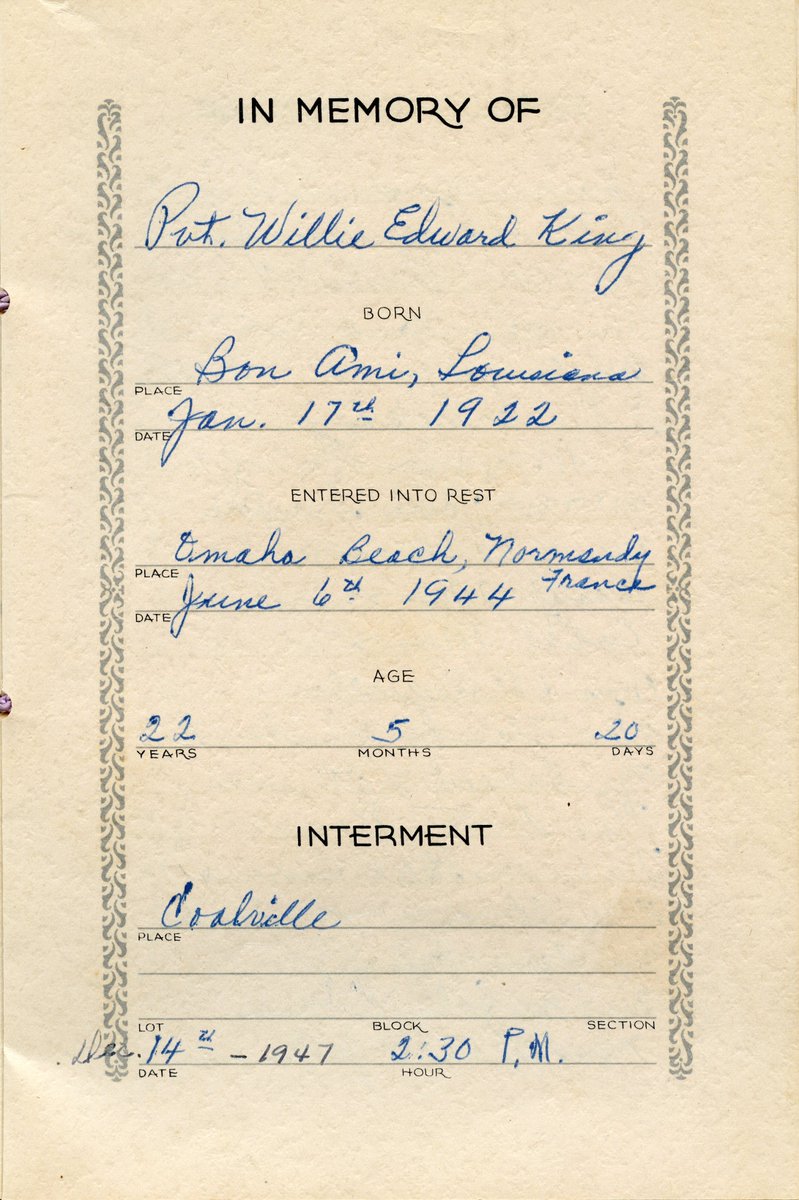 IN MEMORY OF
Pvt. Willie Edward King
BORN
Bon Ami, Louisiana
PLACE
Jan. 17th 1922
DATE
ENTERED INTO REST
Omaha Beach, Normandy
PLACE
France
June 6th 1944
DATE
AGE
22 5 20
YEARS MONTHS DAYS
INTERMENT
Coalville
PLACE
LOT BLOCK SECTION
Dec. 14th - 1947 2:30 P.M.
DATE HOUR